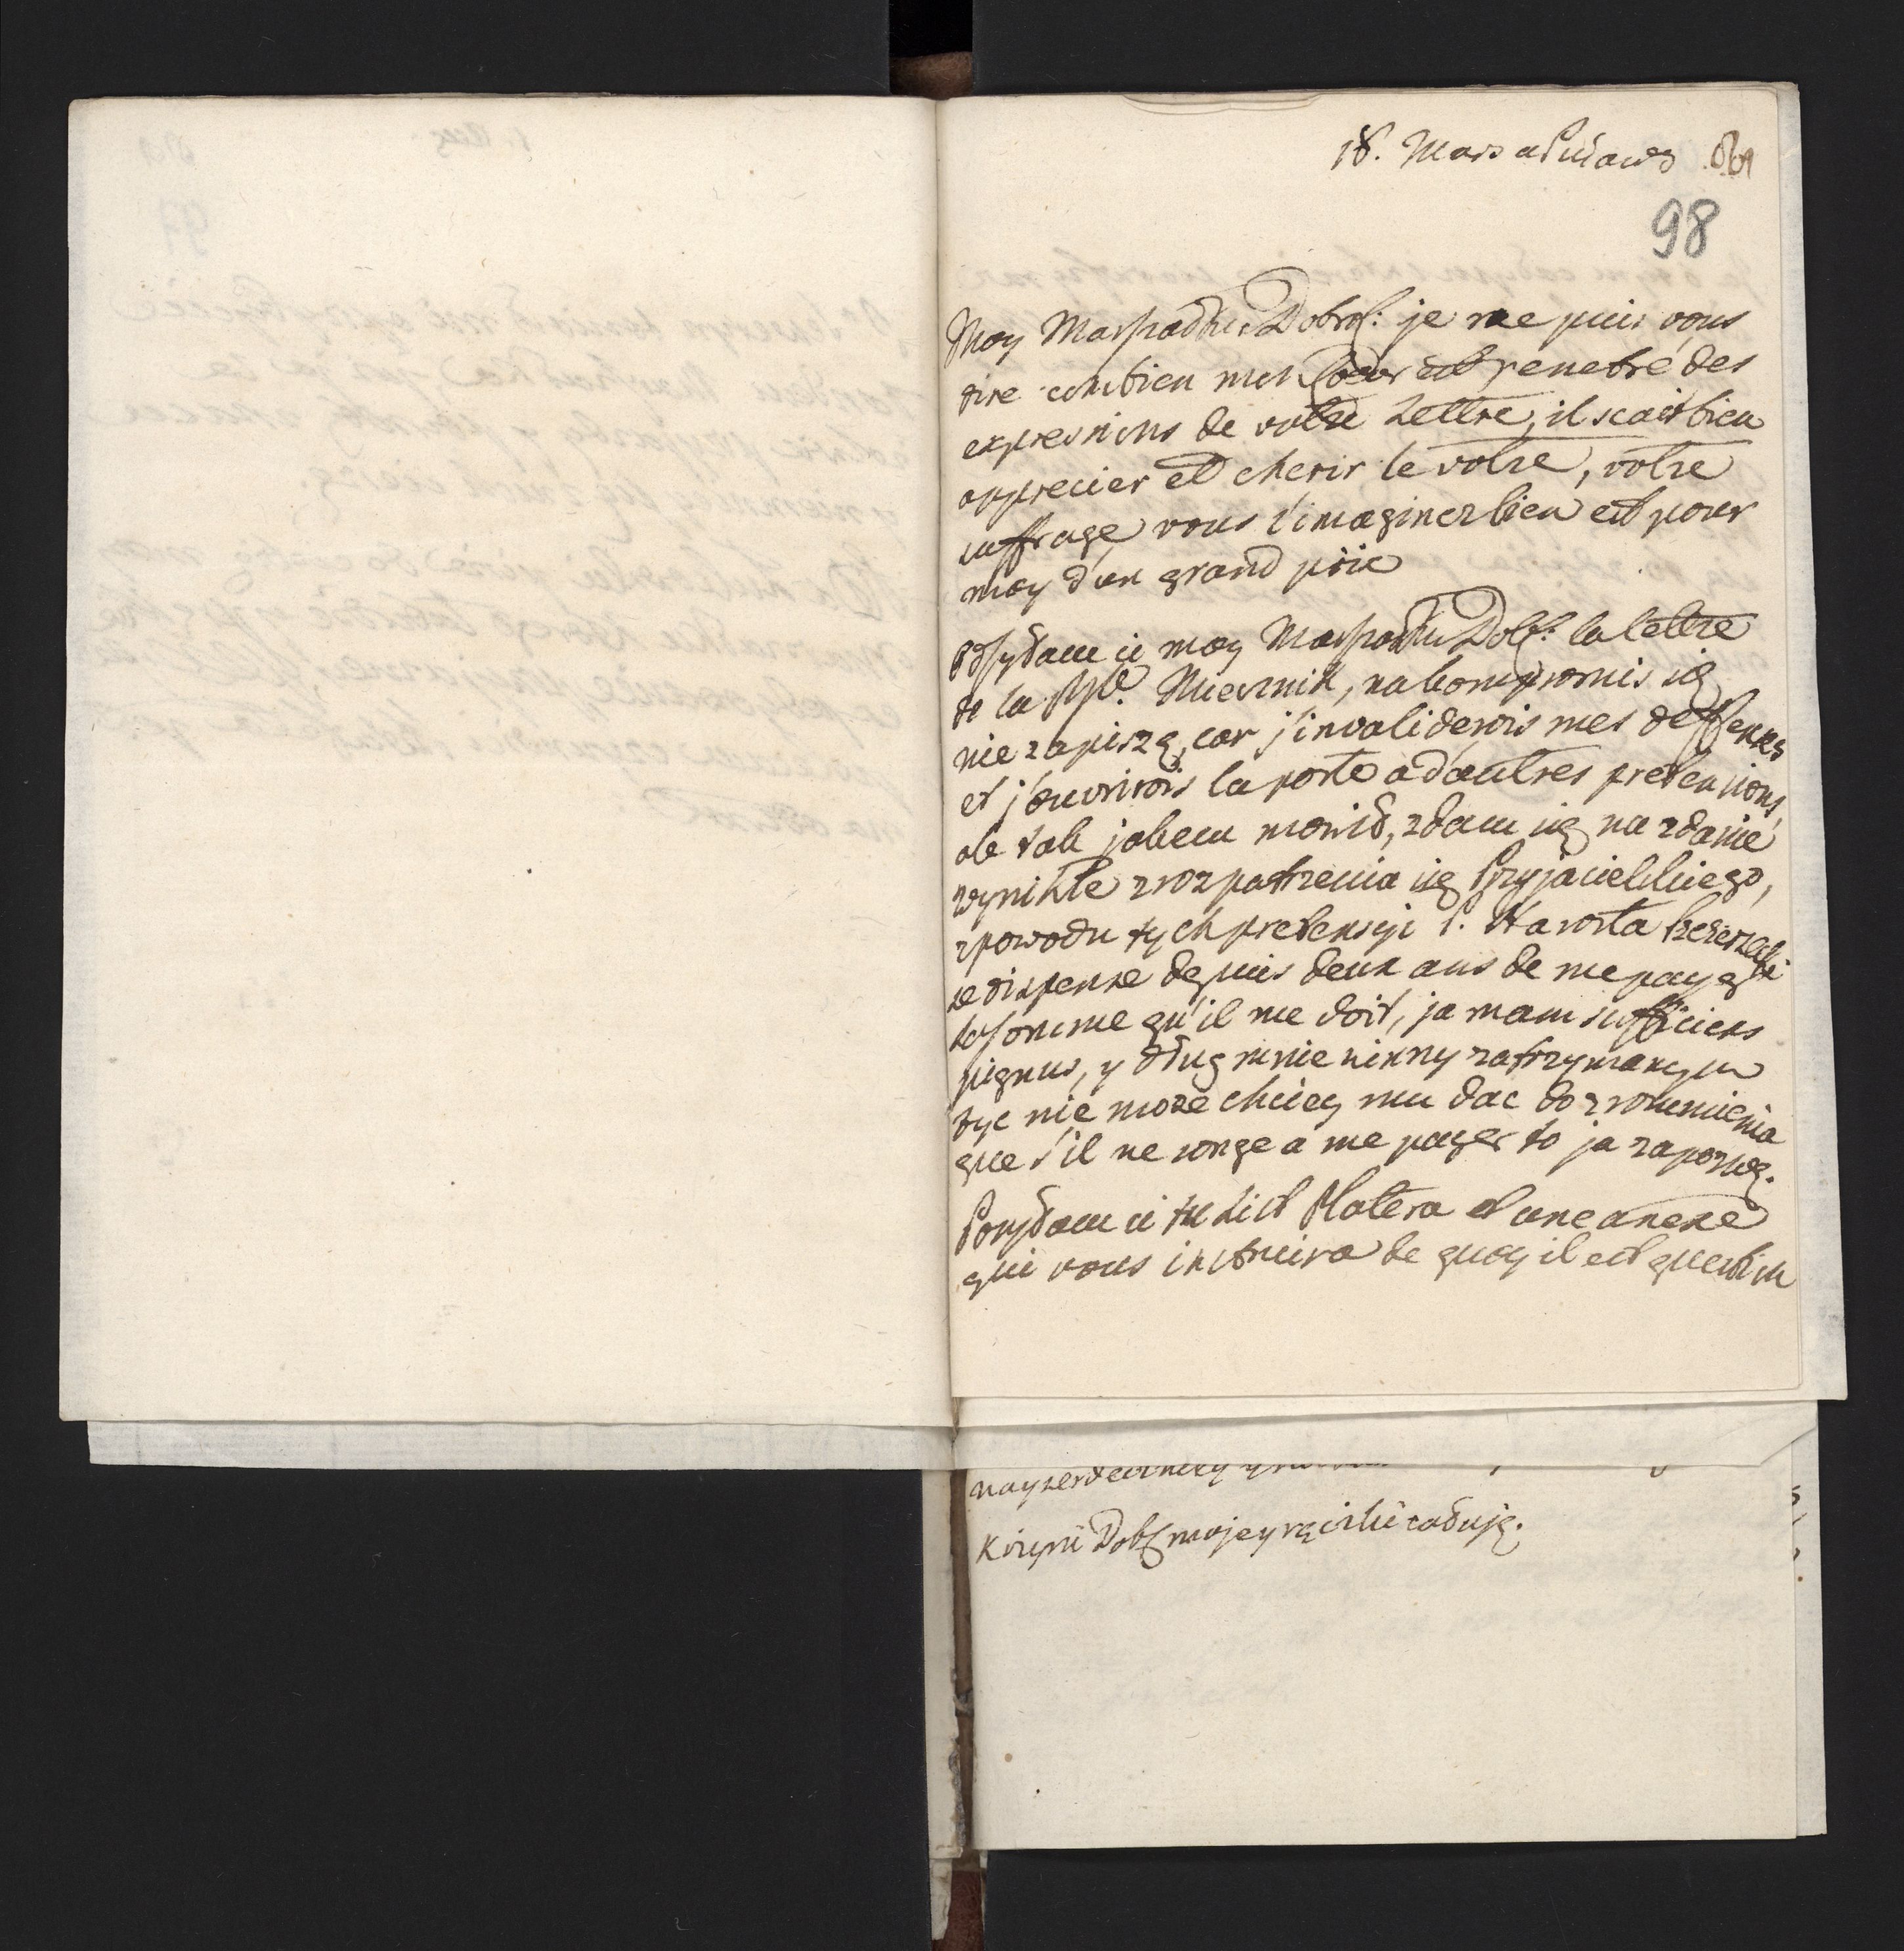 18. Mars a Puławy
98
Moy Marszałku Dobrof: je ne puis vous
dire combien mon Coeur est penetré des
expressions de votre Lettre, il scait bien
apprecier et cherir le votre, votre
suffrage vous l'imaginez bien est pour
moy d'un grand prix
Odsyłam ci moy Marszałku Dobf: la lettre
de la Miecznik, na kompromis się
nie zapiszę, car j'invaliderois mes deffenses
et j'ouvrirois la porte a d'autres pretensions,
ale tak jakem mowił, zdam się na zdanie
wynikłe z rozpatrzenia się Przyjacielskiego,
z powodu tych pretensyi P. Starosta
se dispense depuis deux ans de me payer
la somme qu'il me doit, ja mam sufficiens
pignus, y dług mnie winny zatrzymanym
byc nie może chciey mu dac do zrozumienia
que s'il ne songe a me payer to ja zapozwę.
Posyłam ci tu List Platera et une anexe
qui vous instruira de quoy il est question
nayserdeczniey
Xięźnie Dobf mojey rączki całuję.